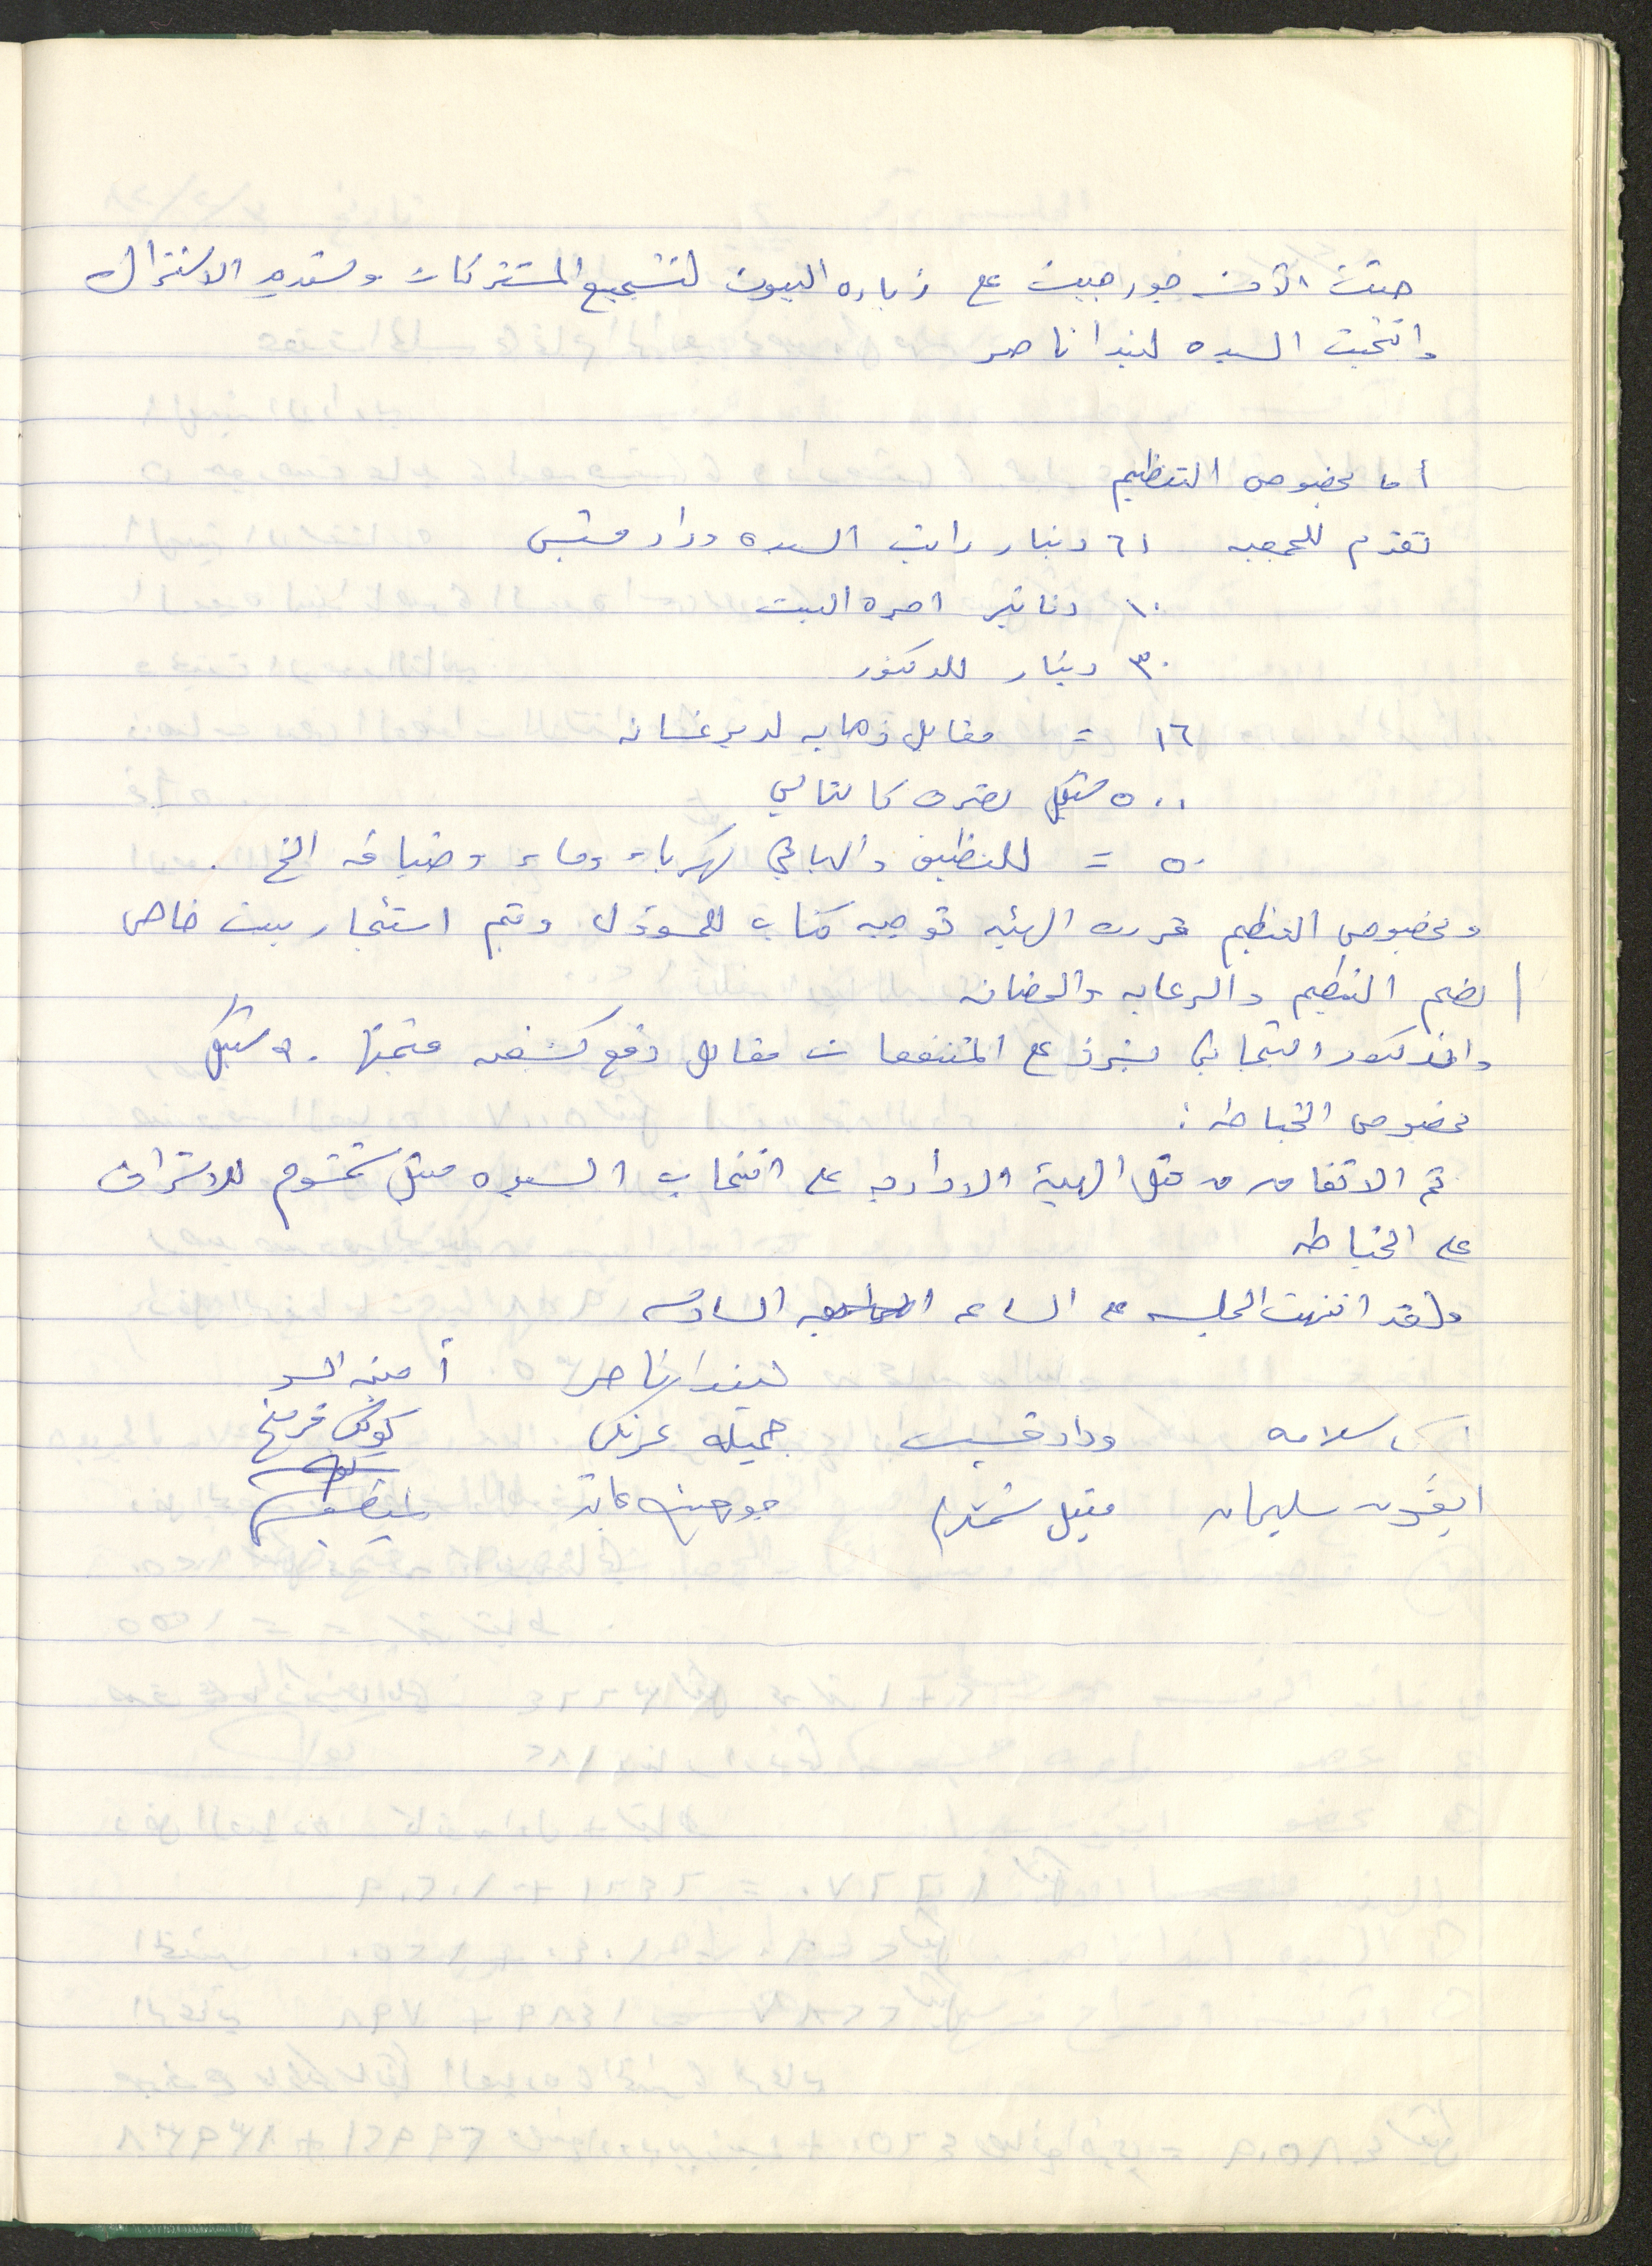 حثت الآنسه جورجيت على زياره البيوت لتشجيع المشتركات وتسديد الاشتراك
وانتخبت السيده ليندا ناصر
أما بخصوص التنظيم
تقدم للجمعيه ٦١ دينار راتب السيده وداد قسيس
١٠ دنانير اجره البيت
٣٠ دينار للدكتور
١٦ = مقابل ذهابه لدير غسانه
٥٠٠ شيكل تصرف كالتالي
٥٠ = للتنظيف والباقي كهرباء وماء وضيافه الخ .
وبخصوص التنظيم قررت الهيئه توجيه كتاب للمسؤول ويتم استئجار بيت خاص
يضم التنظيم والرعايه والحضانه
والدكتور التيجاني يشرف على المنتفعات مقابل دفع كشفيه قيمتها ٥٠ شيكل
بخصوص الخياطه :
تم الاتفاق من قبل الهيئة الاداريه على انتخاب السيده ميشل شحتوم للاشراف
على الخياطه
ولقد انتهت الجلسه على الساعه السادسه
ليندا ناصر أمينه
سلامه وداد قسيس جميله عرنكي
ايفون سليمان جورجيت عابد